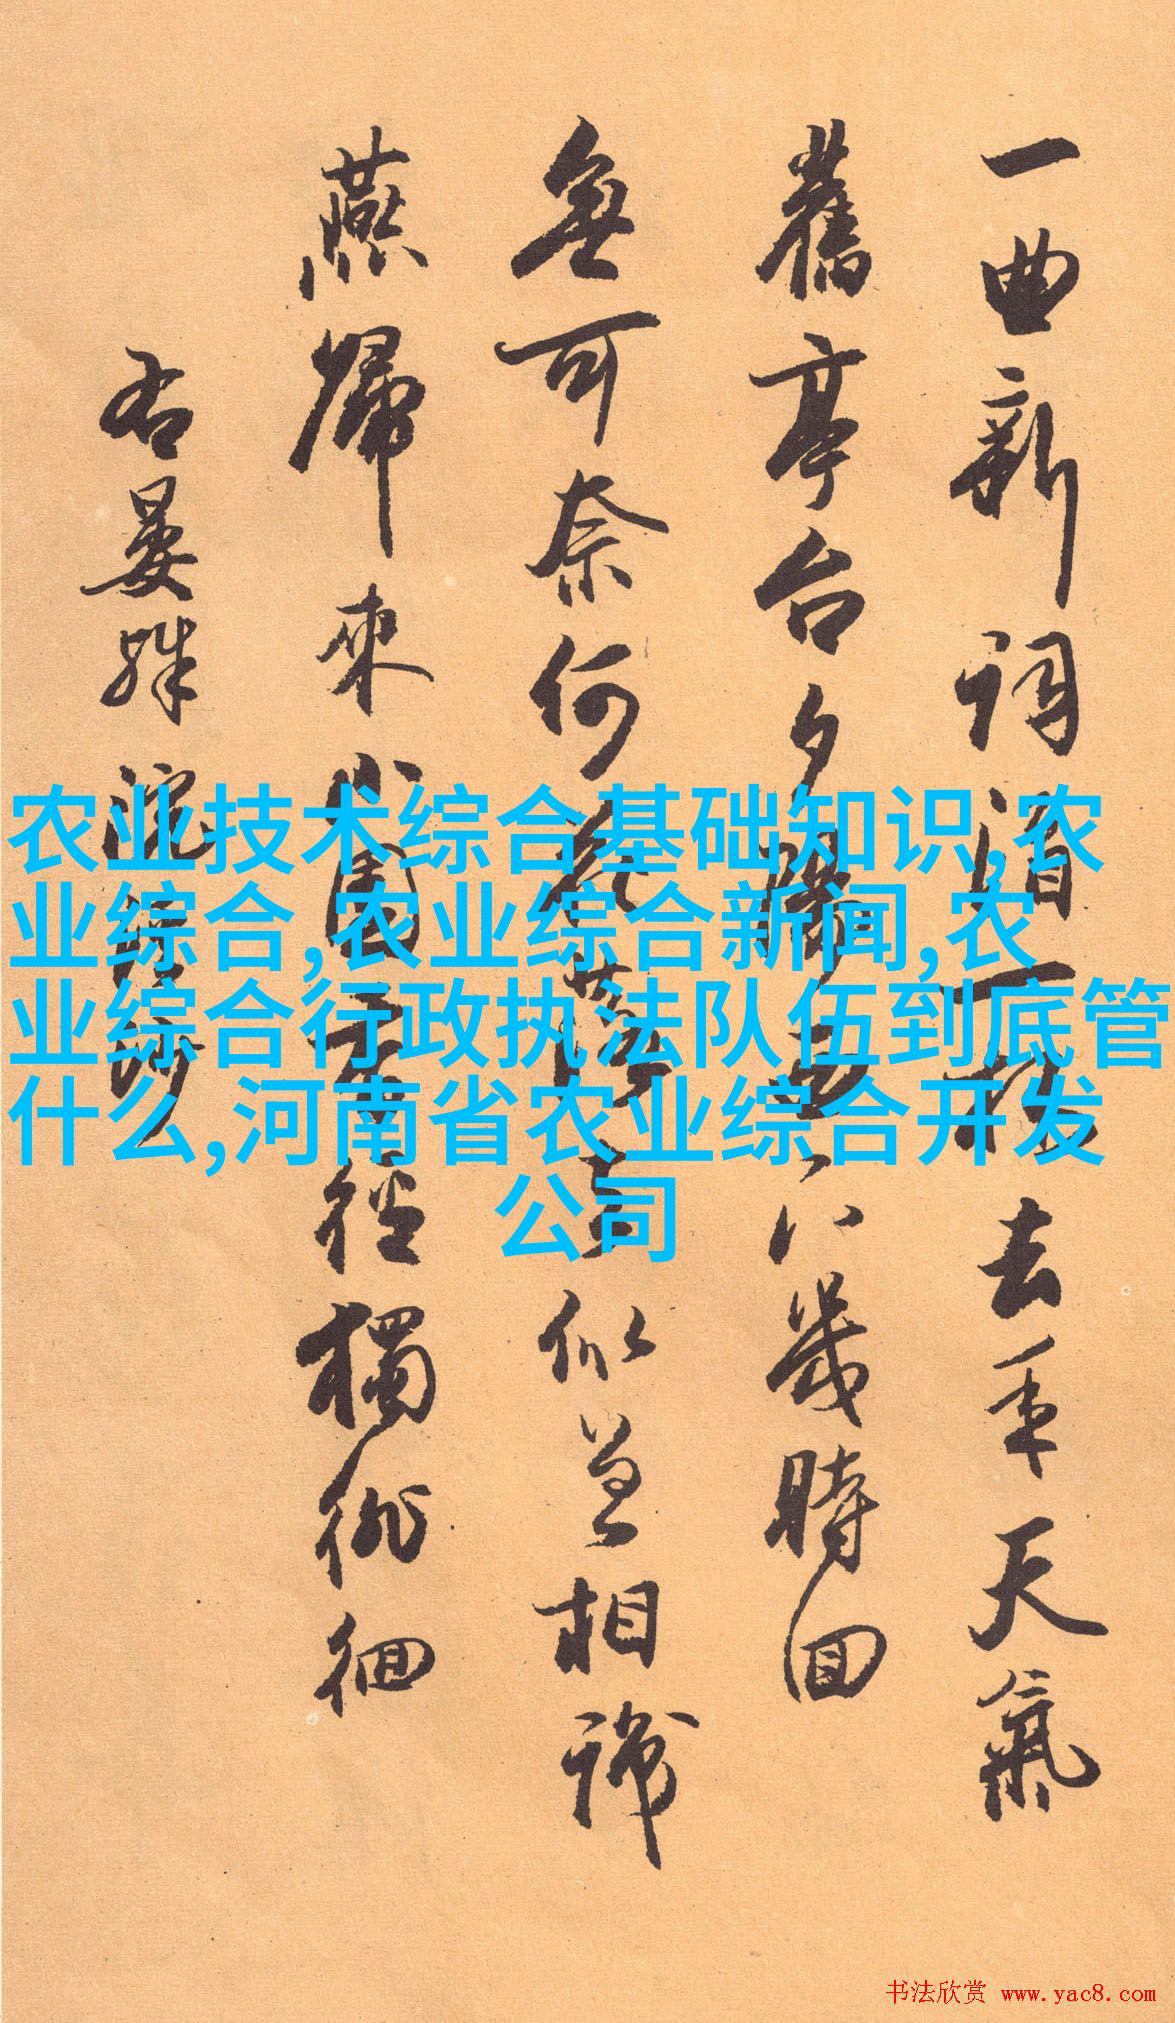 一曲新詞酒一杯去年天氣
舊亭台夕陽西下幾時回
無可奈何花落去似曾相識
燕歸來小園香徑獨徘徊
右晏殊浣溪沙
农业技术综合基础知识,农
业综合,农业综合新闻,农
业综合行政执法队伍到底管
什么,河南省农业综合开发
公司
书法欣赏 www.yac8.com